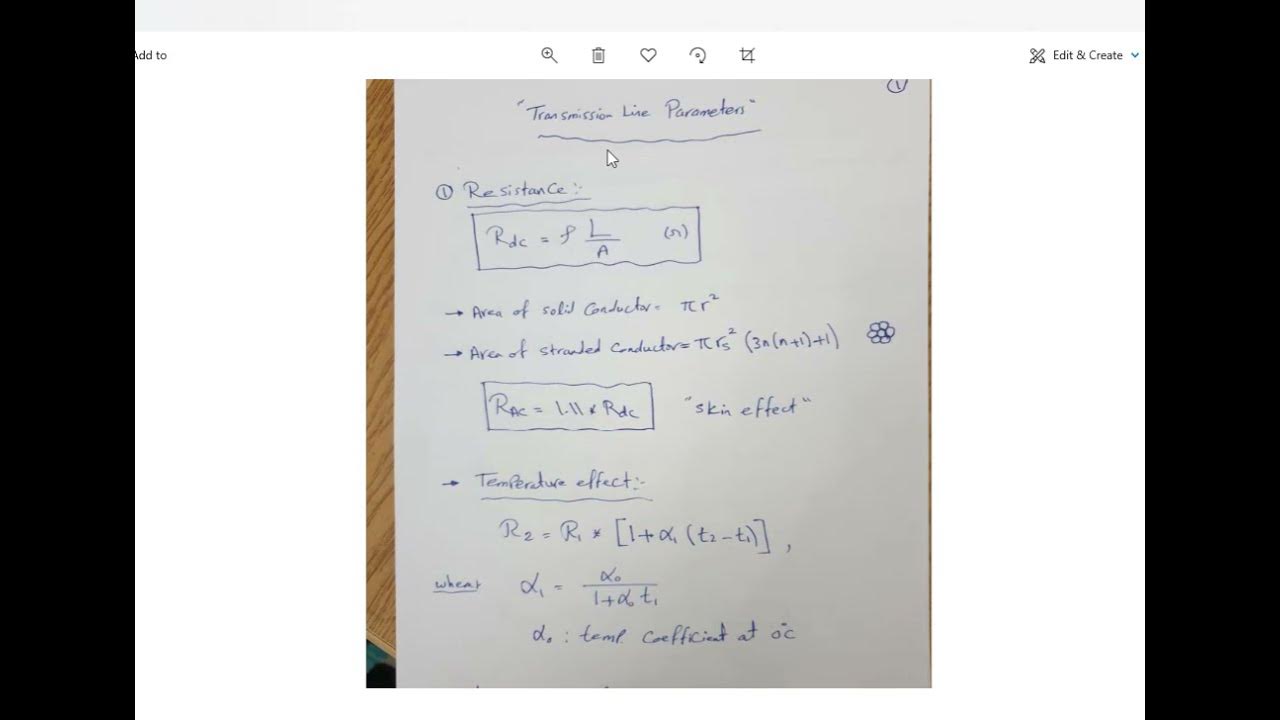 Add to
Edit & Create
①
"Transmission Line Parameters"
① Resistance:-
Rdc = ρ L/A (Ω)
→ Area of solid Conductor = πr²
→ Area of stranded Conductor = πrs² (3n(n+1)+1)
RAC = 1.11 * Rdc "skin effect"
→ Temperature effect:-
R2 = R1 * [1+α1 (t2-t1)],
α1 = α0 / 1+α0 t1
α0 : temp. Coefficient at 0°C